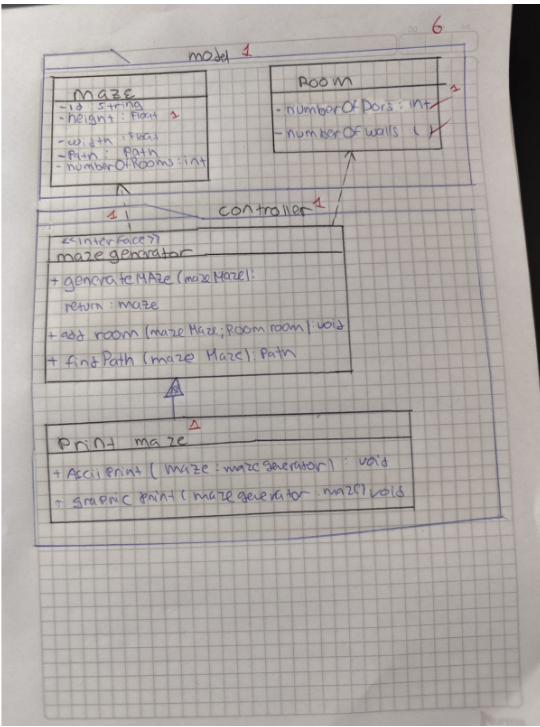 6
model 1
maze
-id: String
-height: Float 1
-width: Float
-Path: Path
-numberOfRooms: int
ROOM
-numberOfDors: int 1
-numberOfwalls
controller 1
1
<<interface>>
maze genarator
+ generateMAze (maze Maze):
return: maze
+ add room (maze Maze; Room room): void
+ findPath (maze Maze): Path
1
Print maze
+ Ascii print (maze: maze generator): void
+ graphic print (maze generator: maze) void